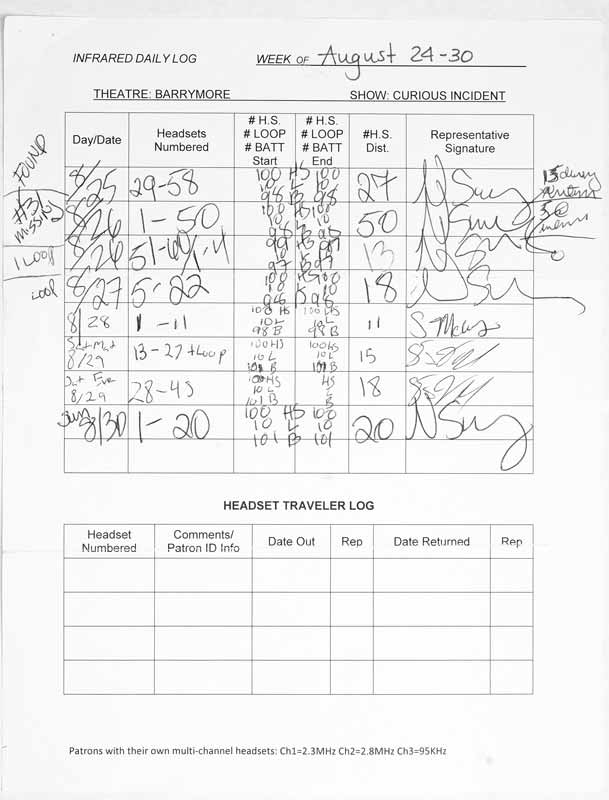 INFRARED DAILY LOG WEEK OF August 24-30
THEATRE: BARRYMORE SHOW: CURIOUS INCIDENT
Day/Date Headsets Numbered # H.S. # LOOP # BATT Start # H.S. # LOOP # BATT End #H.S. Dist. Representative Signature
FOUND
8/25 29-58 100 HS 100 10 L 10 98 B 98 27
#31 missing
8/26 1-50 100 HS 100 10 10 98 B 98 50
8/26 51-60/1-4 99 HS 10 97 B 97 13
1 LOOP
8/27 5-22 100 100 10 10 98 98 18
LOOP
8/28 1-11 100 HS 10 L 98 B 100 HS 10 L 98 B 11
Sat Mat 8/29 13-27 +Loop 100 HS 10 L 101 B 100 HS 10 L 101 B 15
Sat Eve 8/29 28-45 100 HS 10 L 101 B HS L B 18
Sun 8/30 1-20 100 HS 100 10 L 10 101 B 101 20
HEADSET TRAVELER LOG
Headset Numbered Comments/ Patron ID Info Date Out Rep Date Returned Rep
Patrons with their own multi-channel headsets: Ch1=2.3MHz Ch2=2.8MHz Ch3=95KHz